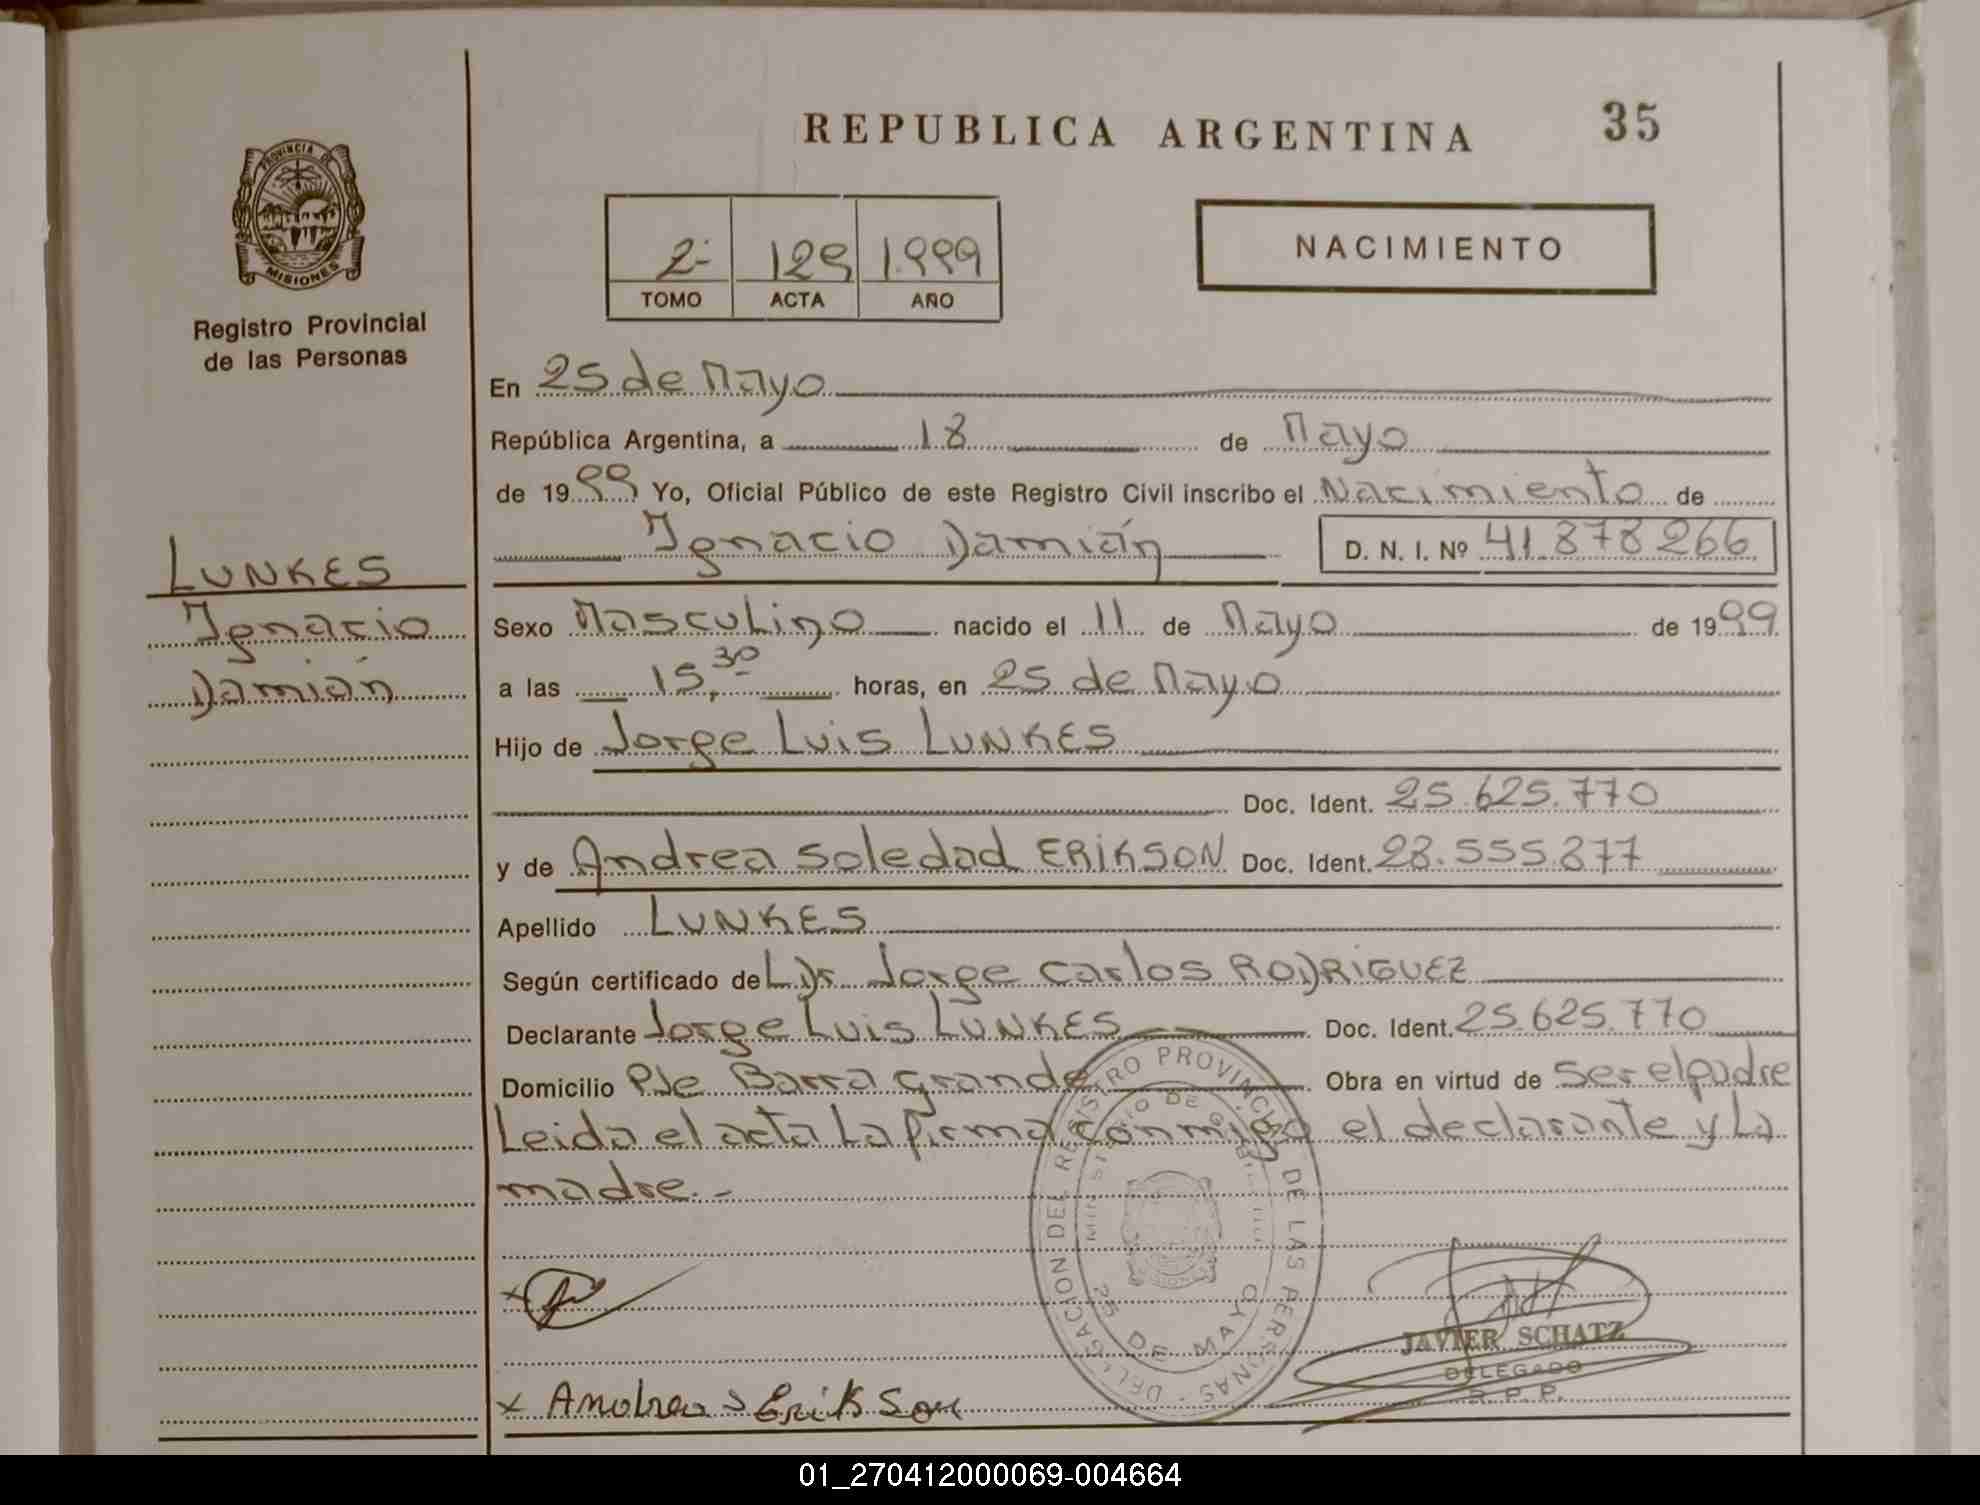 REPUBLICA ARGENTINA
35
PROVINCIA DE
MISIONES
Registro Provincial
de las Personas
2- 129 1.999
TOMO ACTA AÑO
NACIMIENTO
En 25 de Mayo
República Argentina, a 18 de Mayo
de 1999 Yo, Oficial Público de este Registro Civil inscribo el Nacimiento de
Ignacio Damián D. N. I. Nº 41.878266
LUNKES
Ignacio
Damián
Sexo Masculino nacido el 11 de Mayo de 1999
a las 15,30 horas, en 25 de Mayo
Hijo de Jorge Luis LUNKES
Doc. Ident. 25.625.770
y de Andrea Soledad ERIKSON Doc. Ident. 28.555.877
Apellido LUNKES
Según certificado de L Dr Jorge Carlos RODRIGUEZ
Declarante Jorge Luis LUNKES Doc. Ident. 25.625.770
Domicilio Pje Barra Grande Obra en virtud de ser el padre
Leida el acta La firma conmigo el declarante y La
madre.-
DELEGACION DEL REGISTRO PROVINCIAL DE LAS PERSONAS
MINISTERIO DE GOBIERNO
25 DE MAYO
MISIONES
JAVIER SCHATZ
DELEGADO
R. P. P.
x Andrea S Erikson
01_270412000069-004664